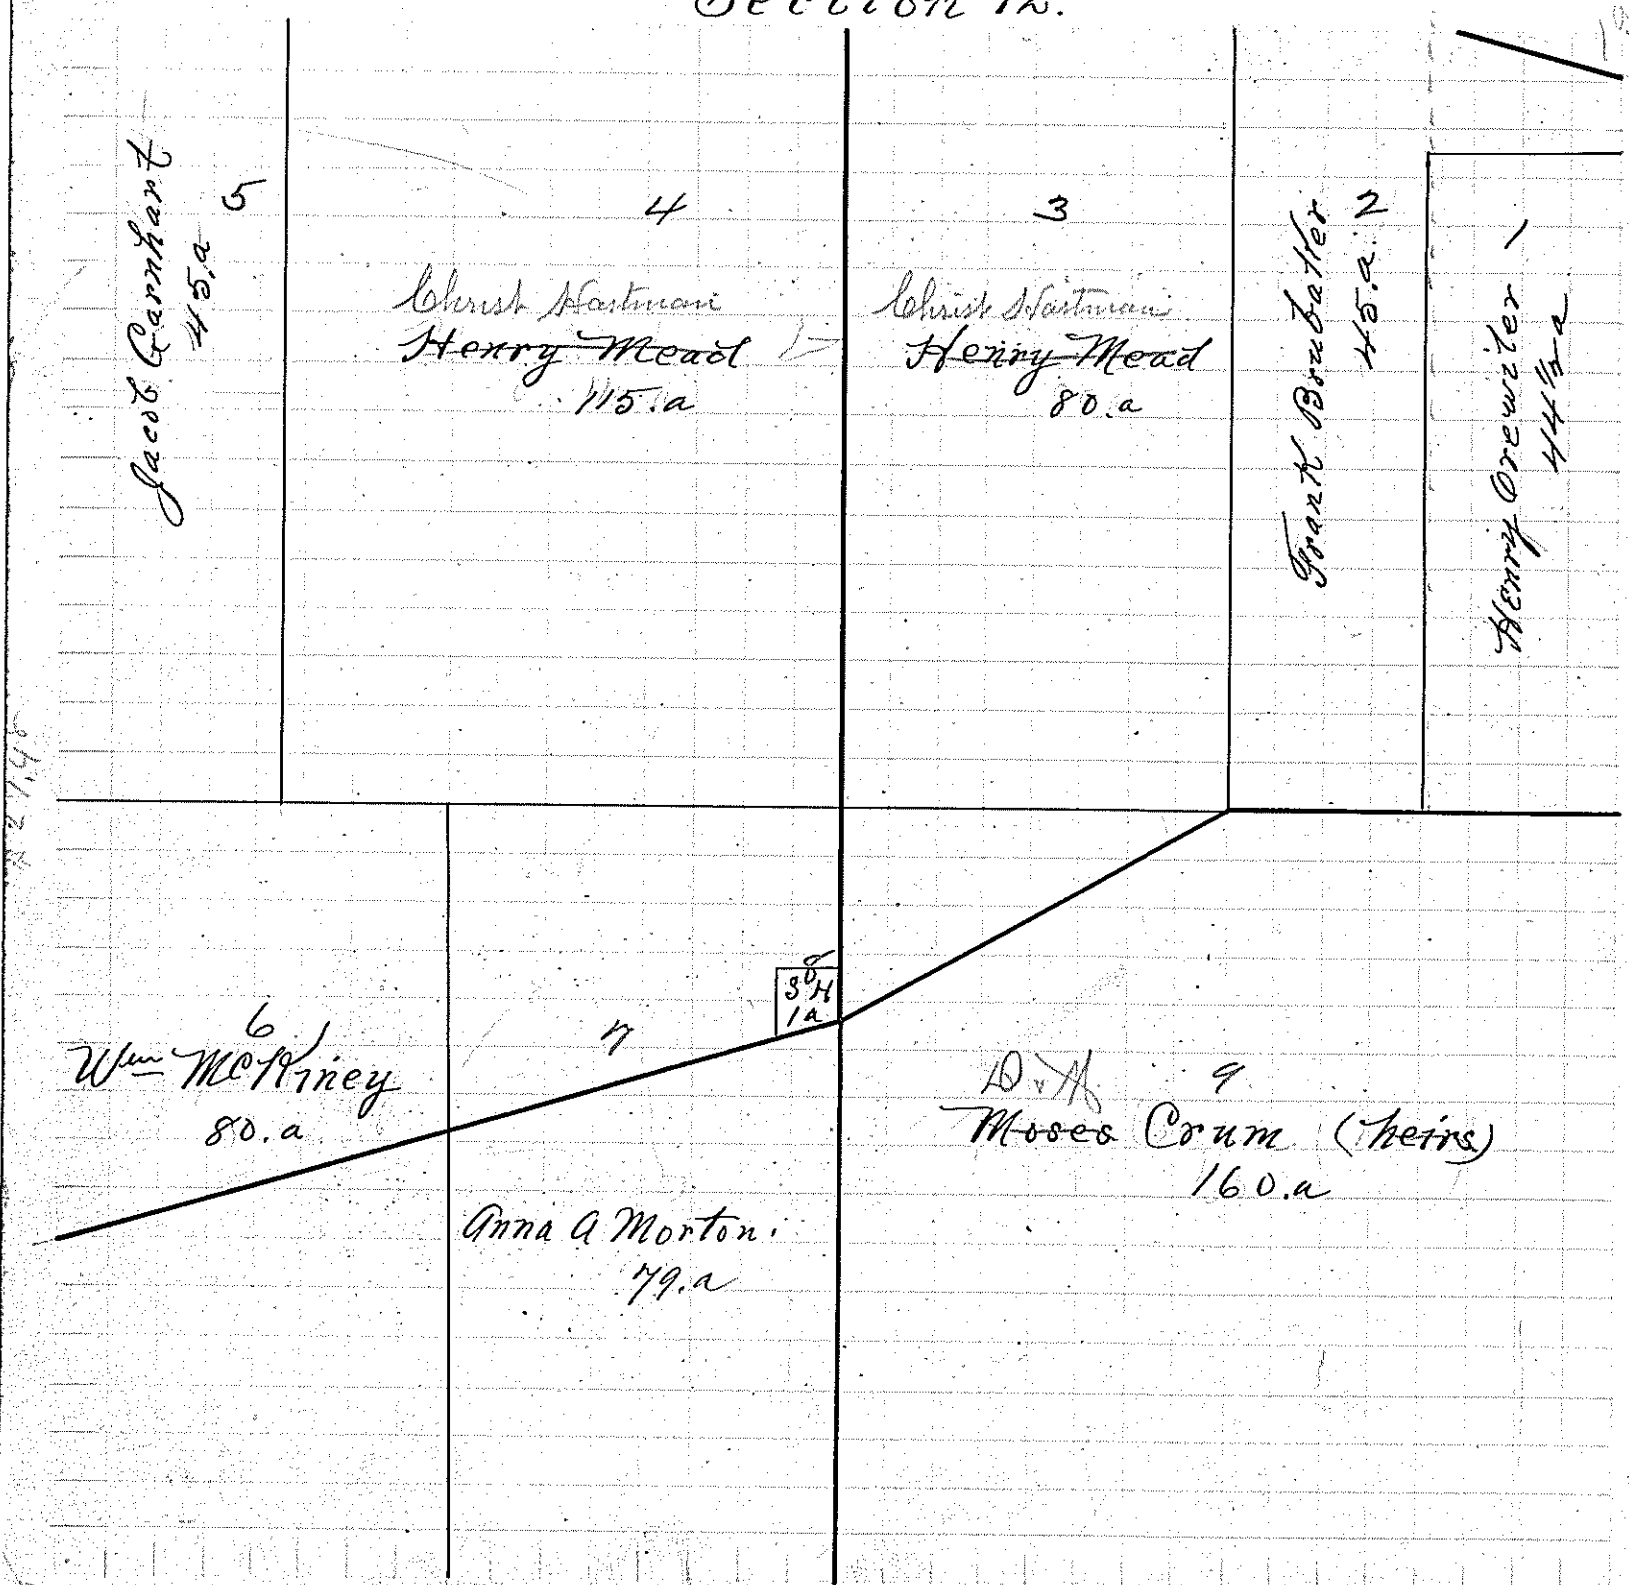 Section 12.
Jacob Garnhart
45.a
5
4
Christ Hartman
Henry Mead
115.a
3
Christ Hartman
Henry Mead
80.a
Frank Brubaker
45.a.
2
Henry Orewiler
44 1/2 a
1
6
Wm McKiney
80.a
7
Anna A Morton.
79.a
8
S H
1 a
D. H.
9
Moses Crum (heirs)
160.a